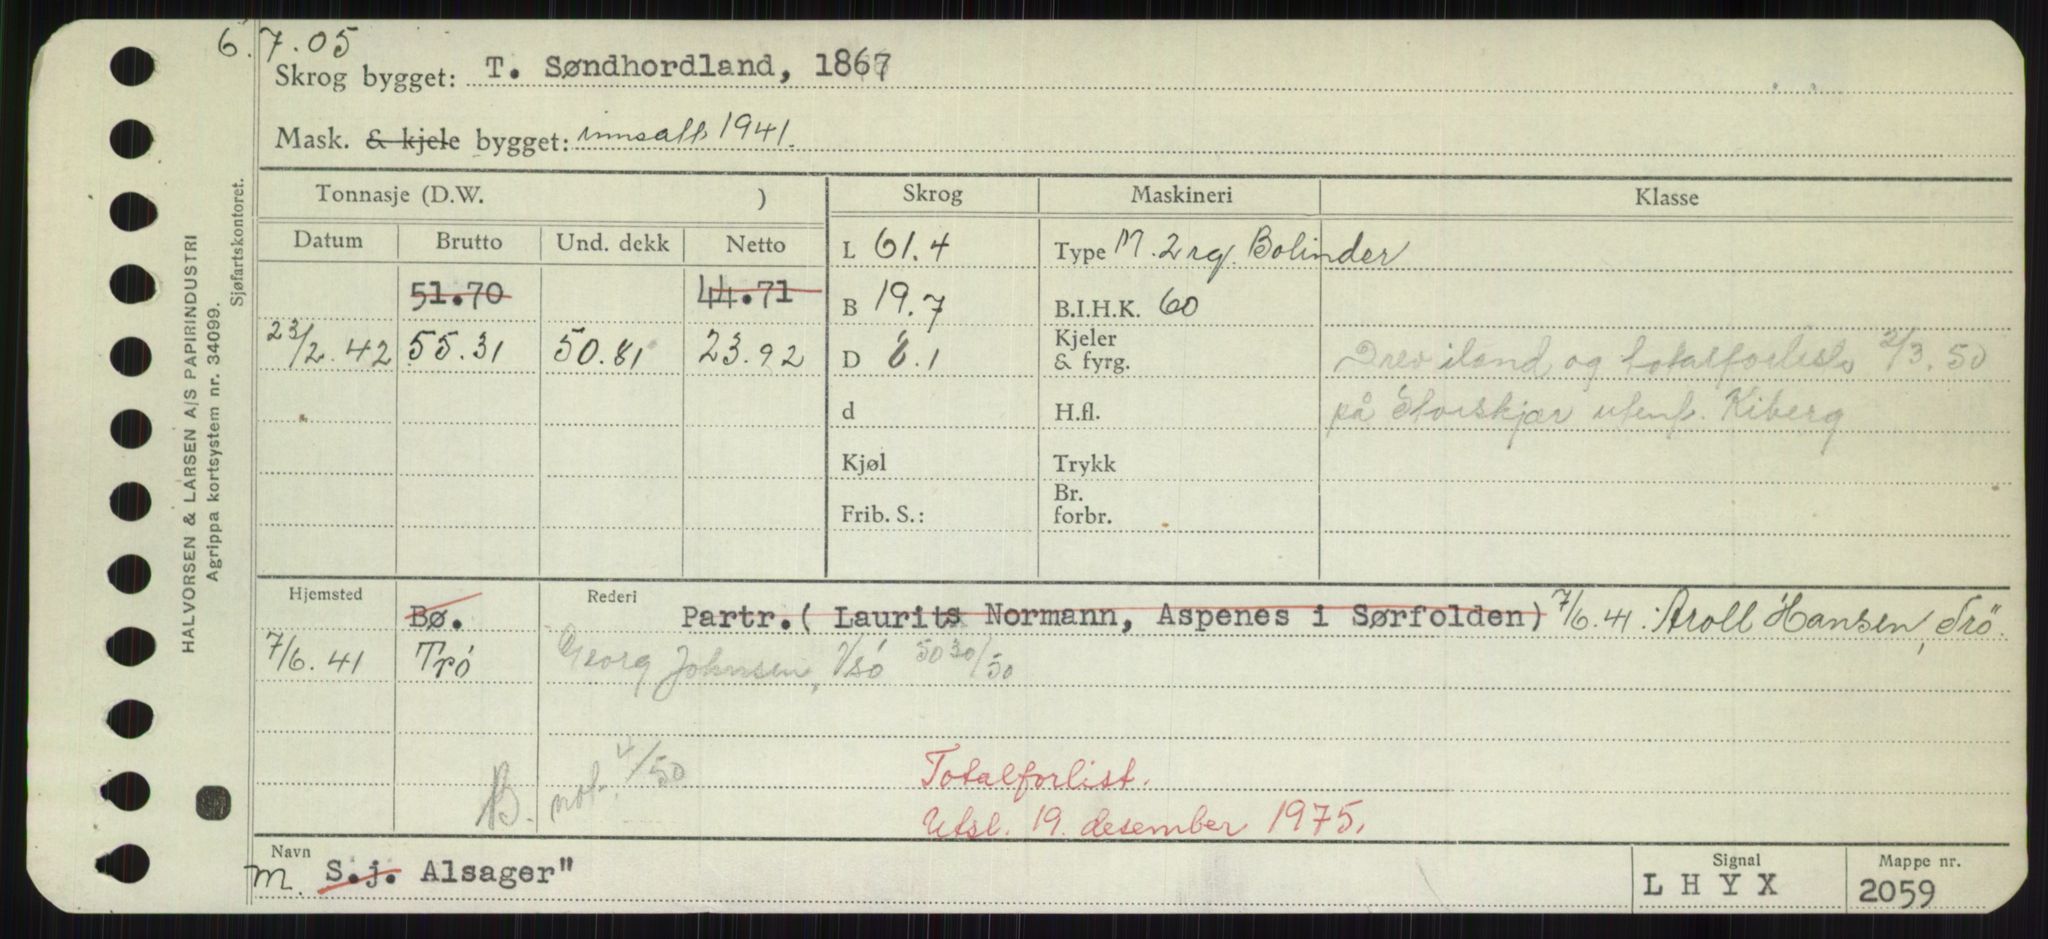 6.7.05
Skrog bygget: T. Søndhordland, 1867
Mask. & kjele bygget: innsatt 1941.
Tonnasje (D.W. )
Skrog
Maskineri
Klasse
Datum Brutto Und. dekk Netto
L 61.4
Type M. 2 rg. Bolinder
51.70 44.71
B 19.7
B.I.H.K. 60
23/2.42 55.31 50.81 23.92
D 8.1
Kjeler
& fyrg.
Drev iland og totalforliste 2/3.50
d
H.fl.
på Storskjær utenf. Kiberg
Kjøl
Trykk
Frib. S.:
Br.
forbr.
Hjemsted
Rederi
Bø. Partr.( Laurits Normann, Aspenes i Sørfolden) 7/6.41. Aroll Hansen, Trö.
7/6.41 Trö Georg Johnsen, Vsö 50 30/50
B. not. 4/50
Totalforlist.
Utsl. 19. desember 1975.
Navn
M. S.j. Alsager"
Signal
L H Y X
Mappe nr.
2059
HALVORSEN & LARSEN A/S PAPIRINDUSTRI
Agrippa kortsystem nr. 34099.
Sjøfartskontoret.